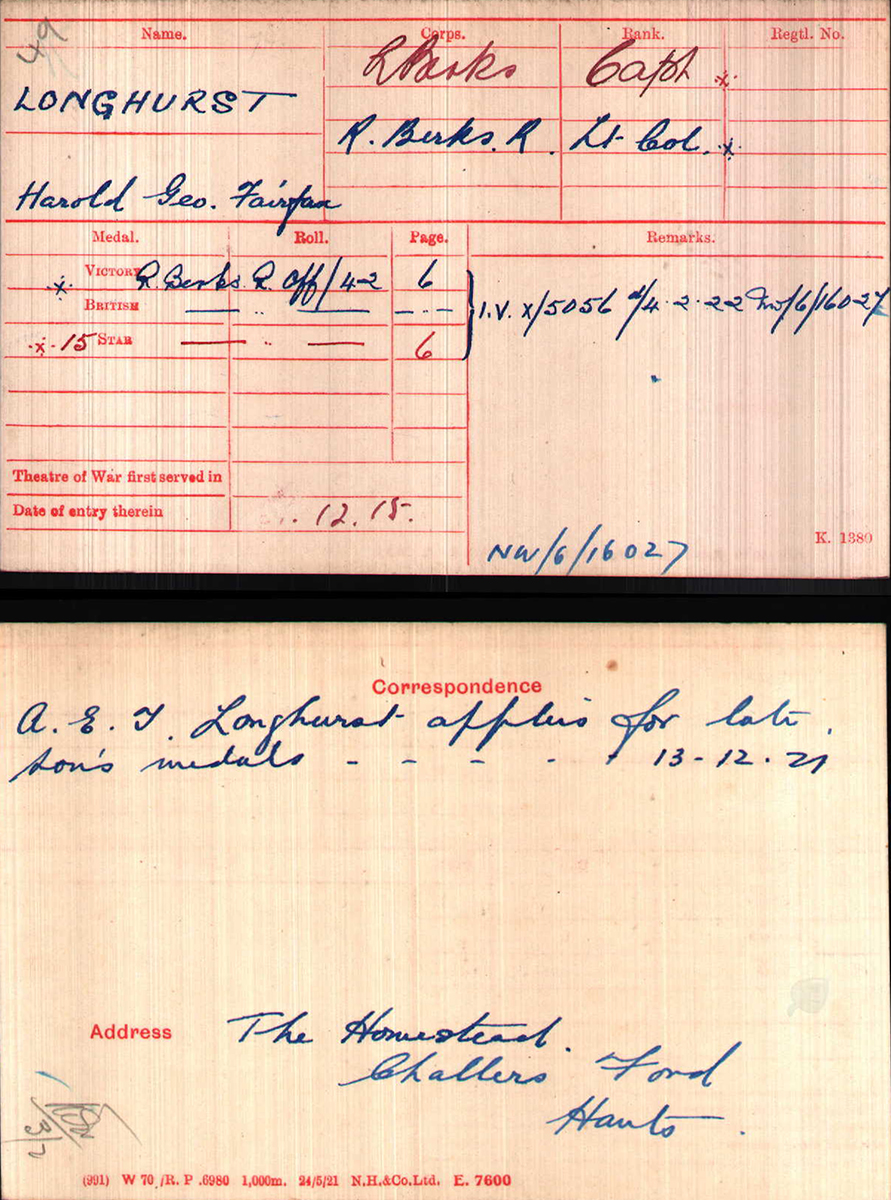 49
Name. Corps. Rank. Regtl. No.
R Berks Capt x
LONGHURST
R. Berks. R. Lt Col. x
Harold Geo. Fairfax
Medal. Roll. Page. Remarks.
x VICTORY R Berks. R. Off/4-2 6
BRITISH — " — — " —
x 15 STAR — " — 6
I.V. X/5056 d/4.2.22 NW/6/16027
Theatre of War first served in
Date of entry therein . 12. 15.
NW/6/16027
K. 1380
Correspondence
A. E. F. Longhurst applies for late
son's medals - - - - - 13-12.21
Address The Homestead.
Challers Ford
Hants.
3/2
(991) W 70 /R. P .6980 1,000m. 24/5/21 N.H.&Co.Ltd. E. 7600